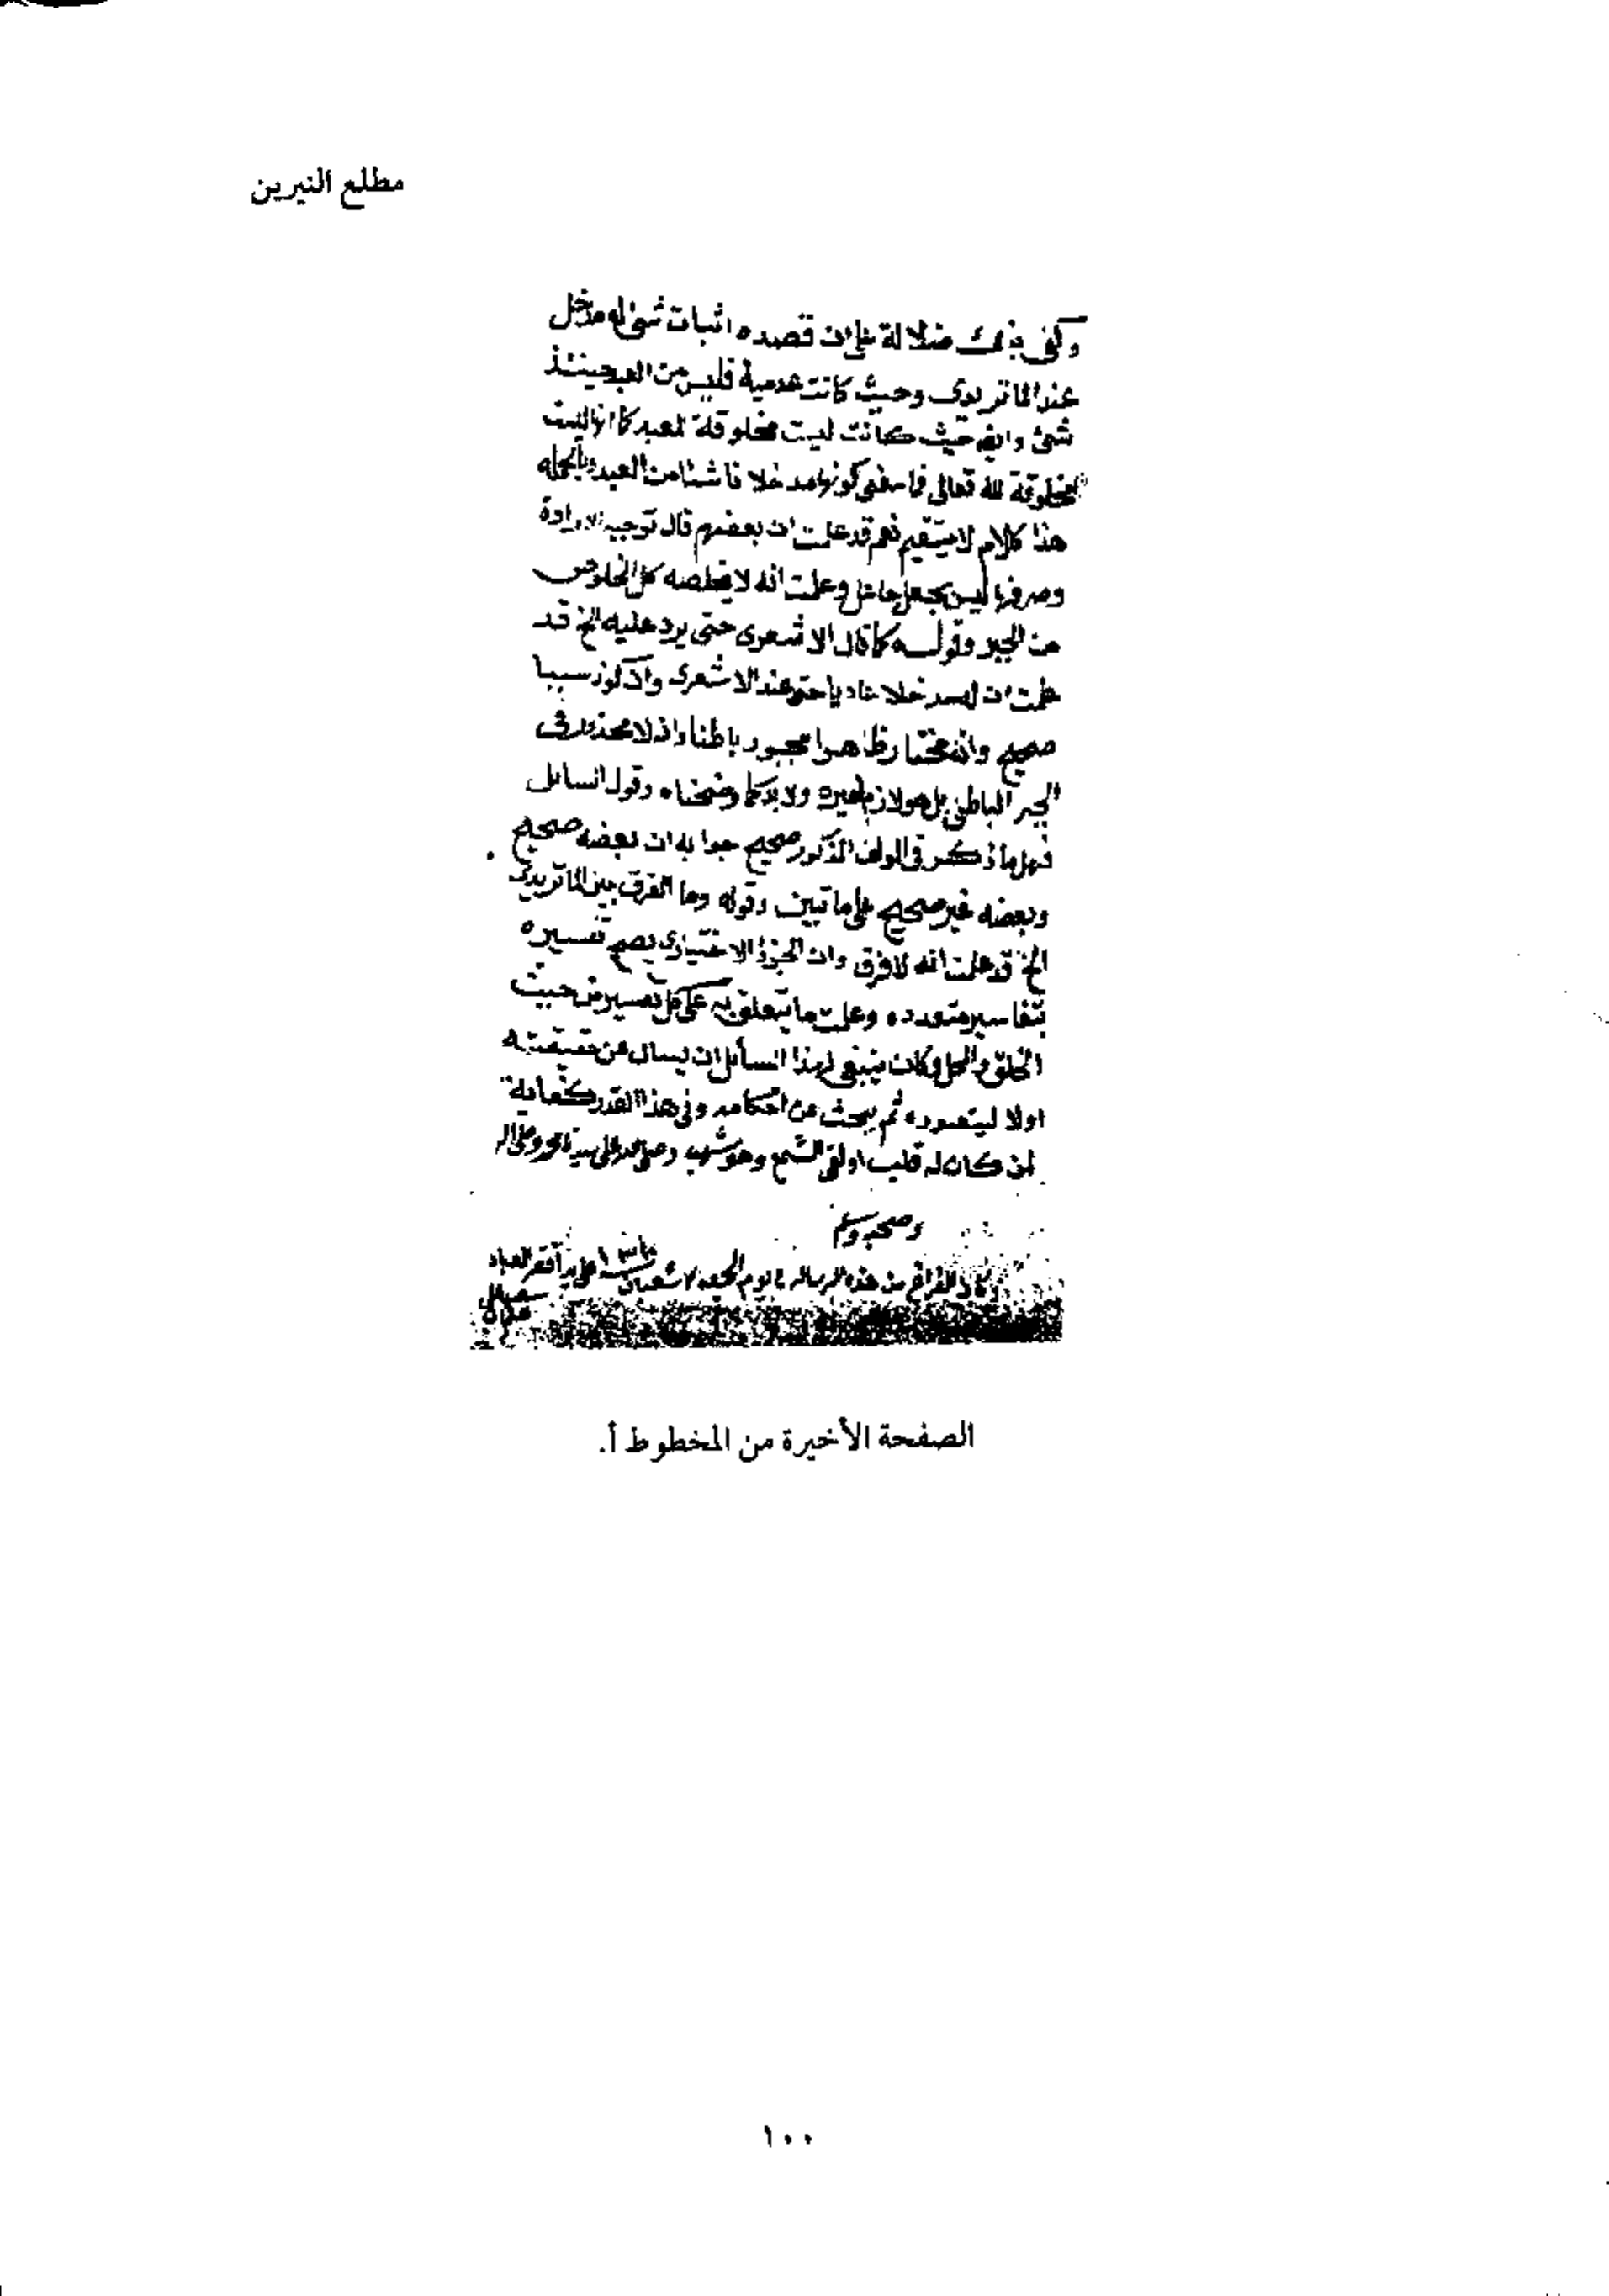 مطلع النيرين
وكفى بذلك ضلالة على ان قصده اثبات شئ له مدخل
عند الماتريدى وحيث كانت عدمية فليس من العبد حينئذ
شئ وايضا حيث كانت ليست مخلوقة للعبد كما انها ليست
مخلوقة لله تعالى فما معنى كونها مدخلا ناشئا من العبد وبالجملة
هذا كلام لا يستقيم نعم قد علمت ان بعضهم قال توجيه الارادة
وصرفها ليس بجعل جاعل وعلمت انه لا يخلصه كل الخلوص
من الجبر وقوله كما قال الاشعرى حتى يرد عليه الخ قد
علمت ان له مدخلا عاديا حتى عند الاشعرى وان كونه سببا
صحيح وانه مختار ظاهرا مجبور باطنا وانه لا محذور فى
الجبر الباطنى بل هو لازم لغيره ولا بد كما وضحناه وقول السائل
فهل ما ذكر فى المؤلف المذكور صحيح جوابه ان بعضه صحيح
وبعضه غير صحيح على ما تبين وقوله وما الفرق بين الماتريدى
الخ قد علمت انه لا فرق وان الجزء الاختيارى يصح تفسيره
بتفاسير متعدده وعلمت ما يتعلق به على كل تفسير من حيث
الخلق والمحل وكان ينبغى لهذا السائل ان يسال عن حقيقته
اولا ليتصوره ثم يبحث عن احكامه وفى هذا القدر كفاية
لمن كان له قلب او القى السمع وهو شهيد وصلى الله على سيدنا محمد وعلى اله
وصحبه وسلم
وكان الفراغ من هذه الرسالة يوم الجمعه شعبان على يد افقر العباد
الصفحة الأخيرة من المخطوط أ.
١٠٠